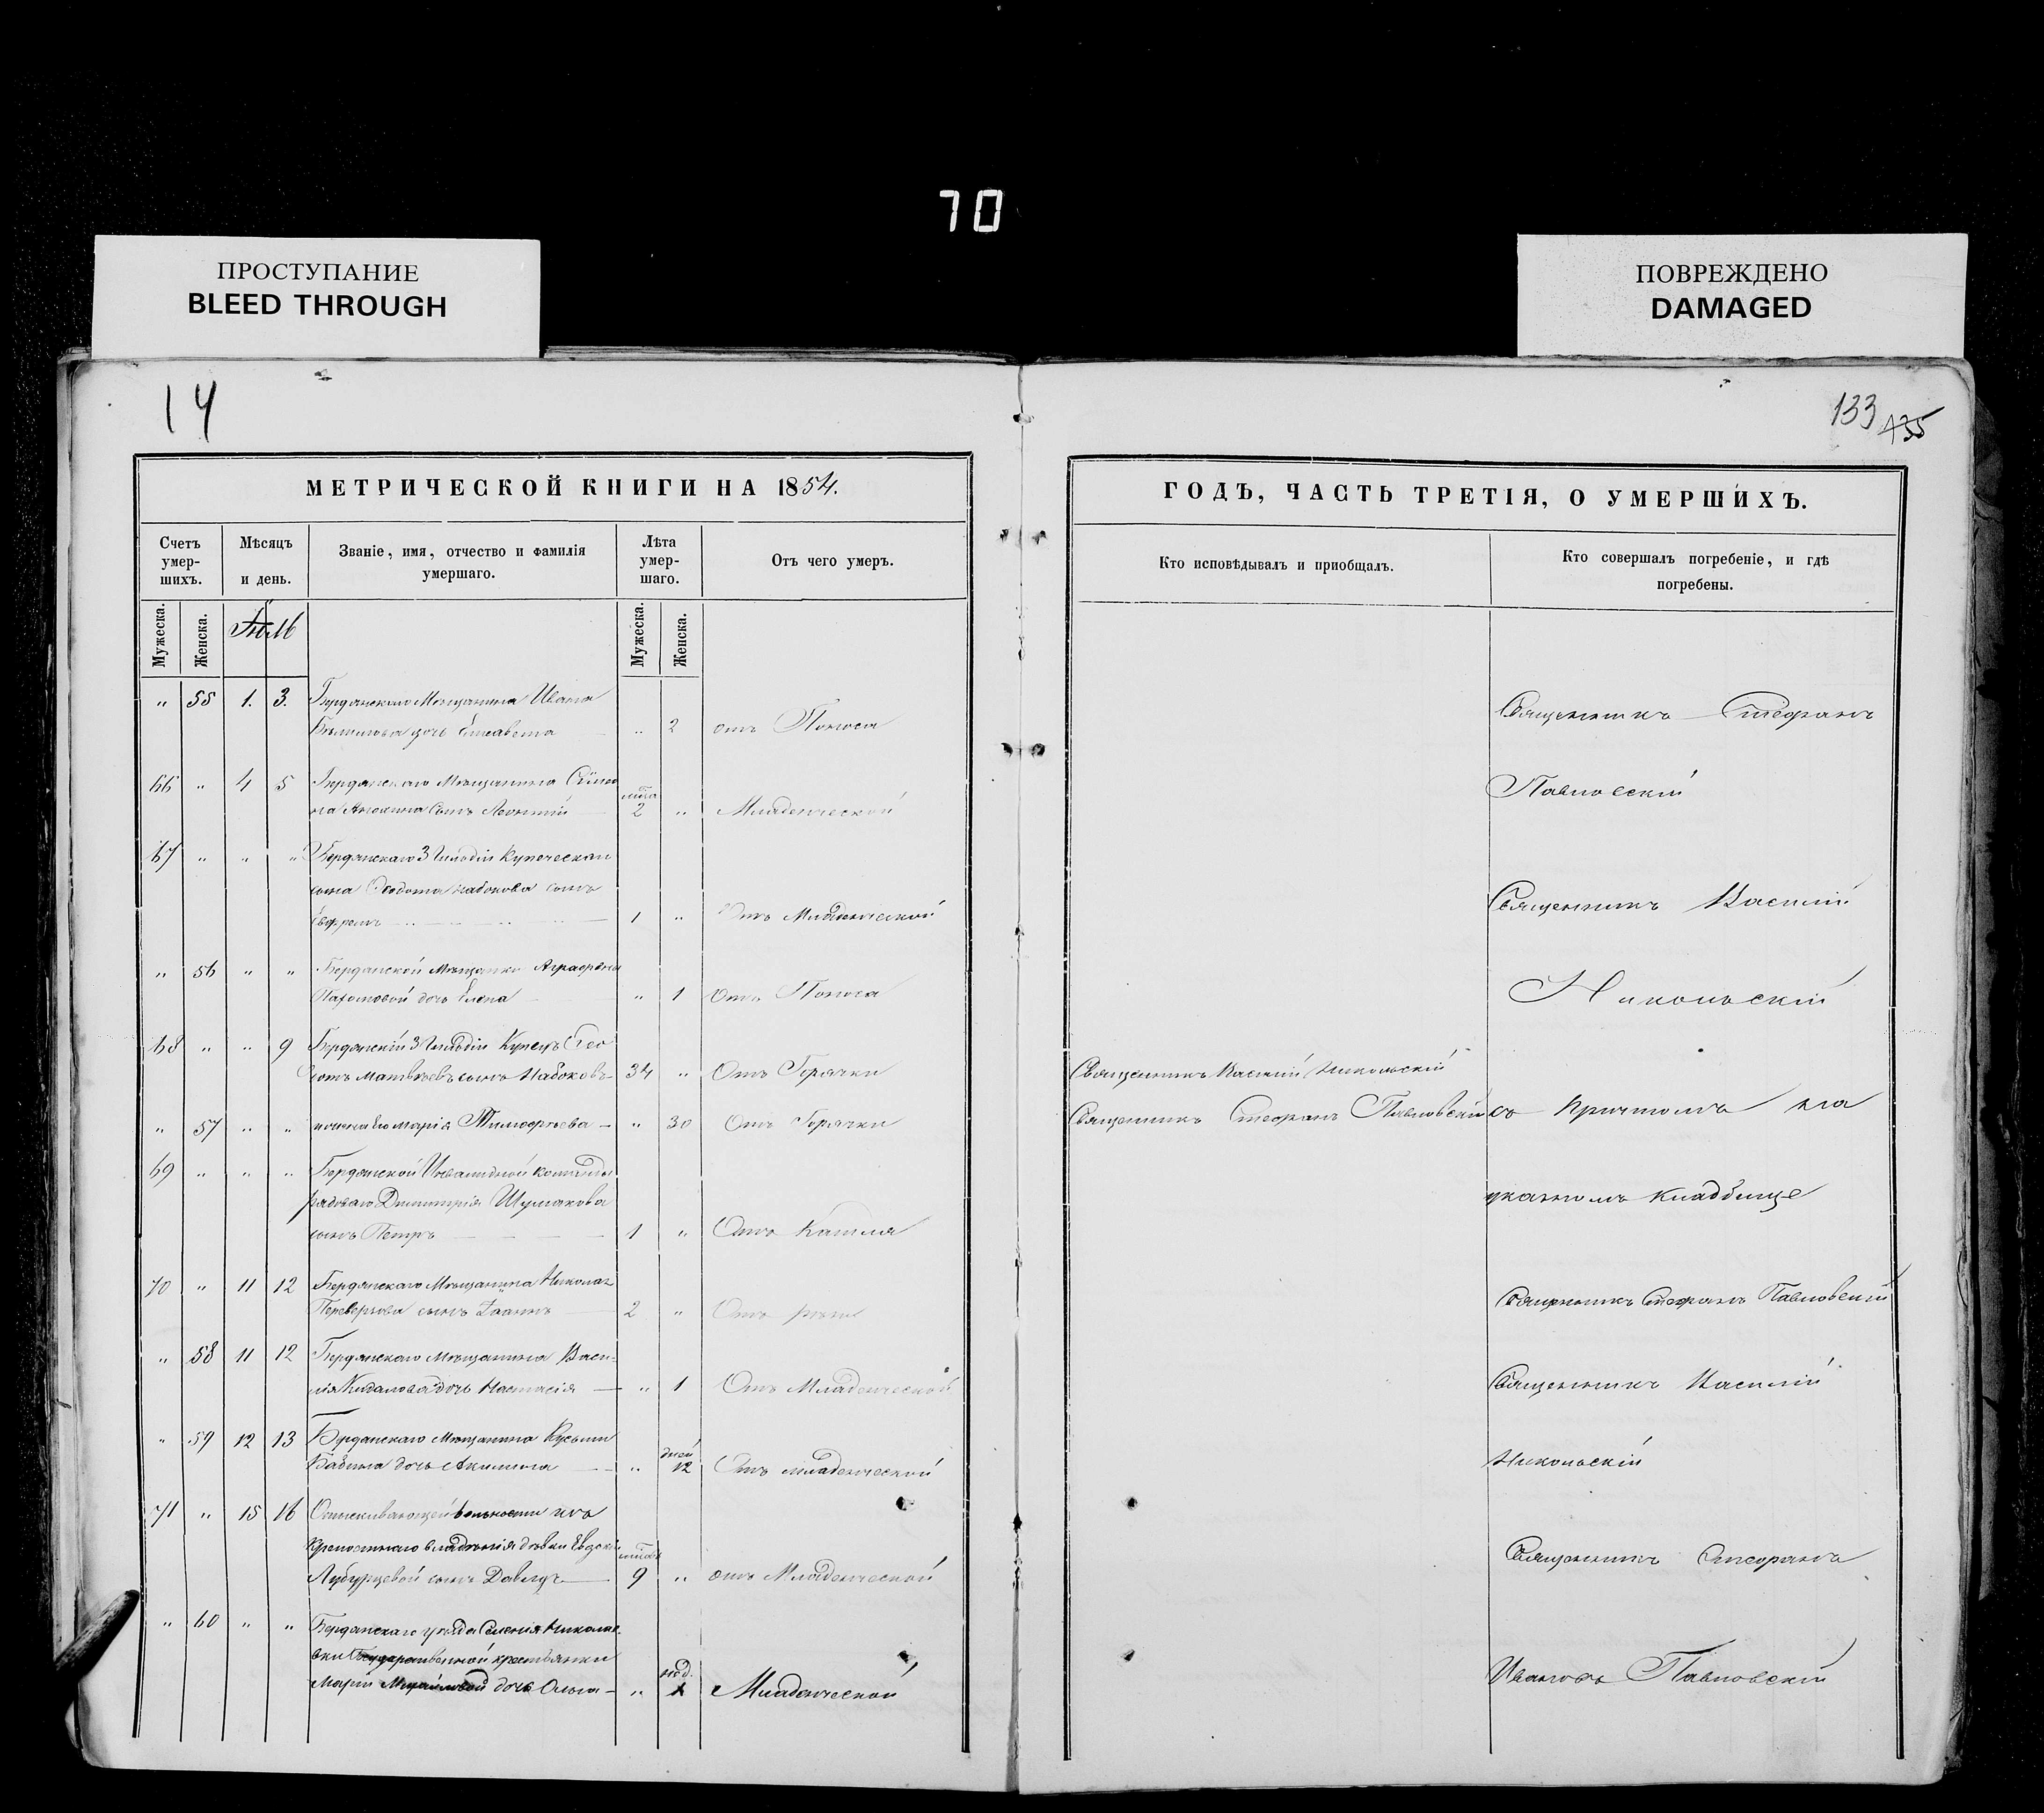 70
ПРОСТУПАНИЕ
BLEED THROUGH
ПОВРЕЖДЕНО
DAMAGED
14
133 135
МЕТРИЧЕСКОЙ КНИГИ НА 1854.
Счетъ умер-шихъ.
Мѣсяцъ и день.
Званіе, имя, отчество и фамилія умершаго.
Лѣта умер-шаго.
Отъ чего умеръ.
Мужеска.
Женска.
Мужеска.
Женска.
" 55 1. 3. Бердянскаго Мѣщанина Ивана
дочь Елисавета " 2 отъ Поноса
66 " 4 5 Бердянскаго Мѣщанина
сынъ Леонтій 2 " Младенческой
67 " " " Бердянскаго 3 Гильдіи Купеческаго
сына Ѳедота Набокова сынъ
Ефремъ 1 " Отъ Младенческой
" 56 " " Бердянской Мѣщанки Аграфены
Пахомовой дочь Елена " 1 Отъ Поноса
68 " " 9 Бердянскій 3 Гильдіи Купецъ Ѳео
дотъ Матвѣевъ сынъ Набоковъ 34 " Отъ Горячки
" 57 " " жена Его Марія Тимофѣева " 30 Отъ Горячки
69 " " " Бердянской Инвалидной команды
рядоваго Димитрія Шумакова
сынъ Петръ 1 " Отъ Кашля
70 " 11 12 Бердянскаго Мѣщанина Николая
сынъ Іоаннъ 2 " Отъ
" 58 11 12 Бердянскаго Мѣщанина Васи-
лія дочь Настасія " 1 Отъ Младенческой
" 59 12 13 Бердянскаго Мѣщанина Кузьмы
Бабина дочь Акилина " дней 12 Отъ младенческой
71 " 15 16 Отыскивающей вольности изъ
крепостнаго владѣнія дѣвки Евдокіи
сынъ Давидъ 9 " отъ Младенческой
" 60 " " Бердянскаго уѣзда Селенія Николае-
вки Государственной крестьянки
Маріи Михайловой дочь Ольга " Младенческой
ГОДЪ, ЧАСТЬ ТРЕТІЯ, О УМЕРШИХЪ.
Кто исповѣдывалъ и пріобщалъ.
Кто совершалъ погребеніе, и гдѣ погребены.
Священникъ Василій Никольскій
Священникъ Стефанъ Павловскій
Священникъ Стефанъ
Павловскій
Священникъ Василій
Никольскій
съ Причтомъ на
кладбище
Священникъ Стефанъ Павловскій
Священникъ Василій
Никольскій
Священникъ Стефанъ
Ивановъ Павловскій